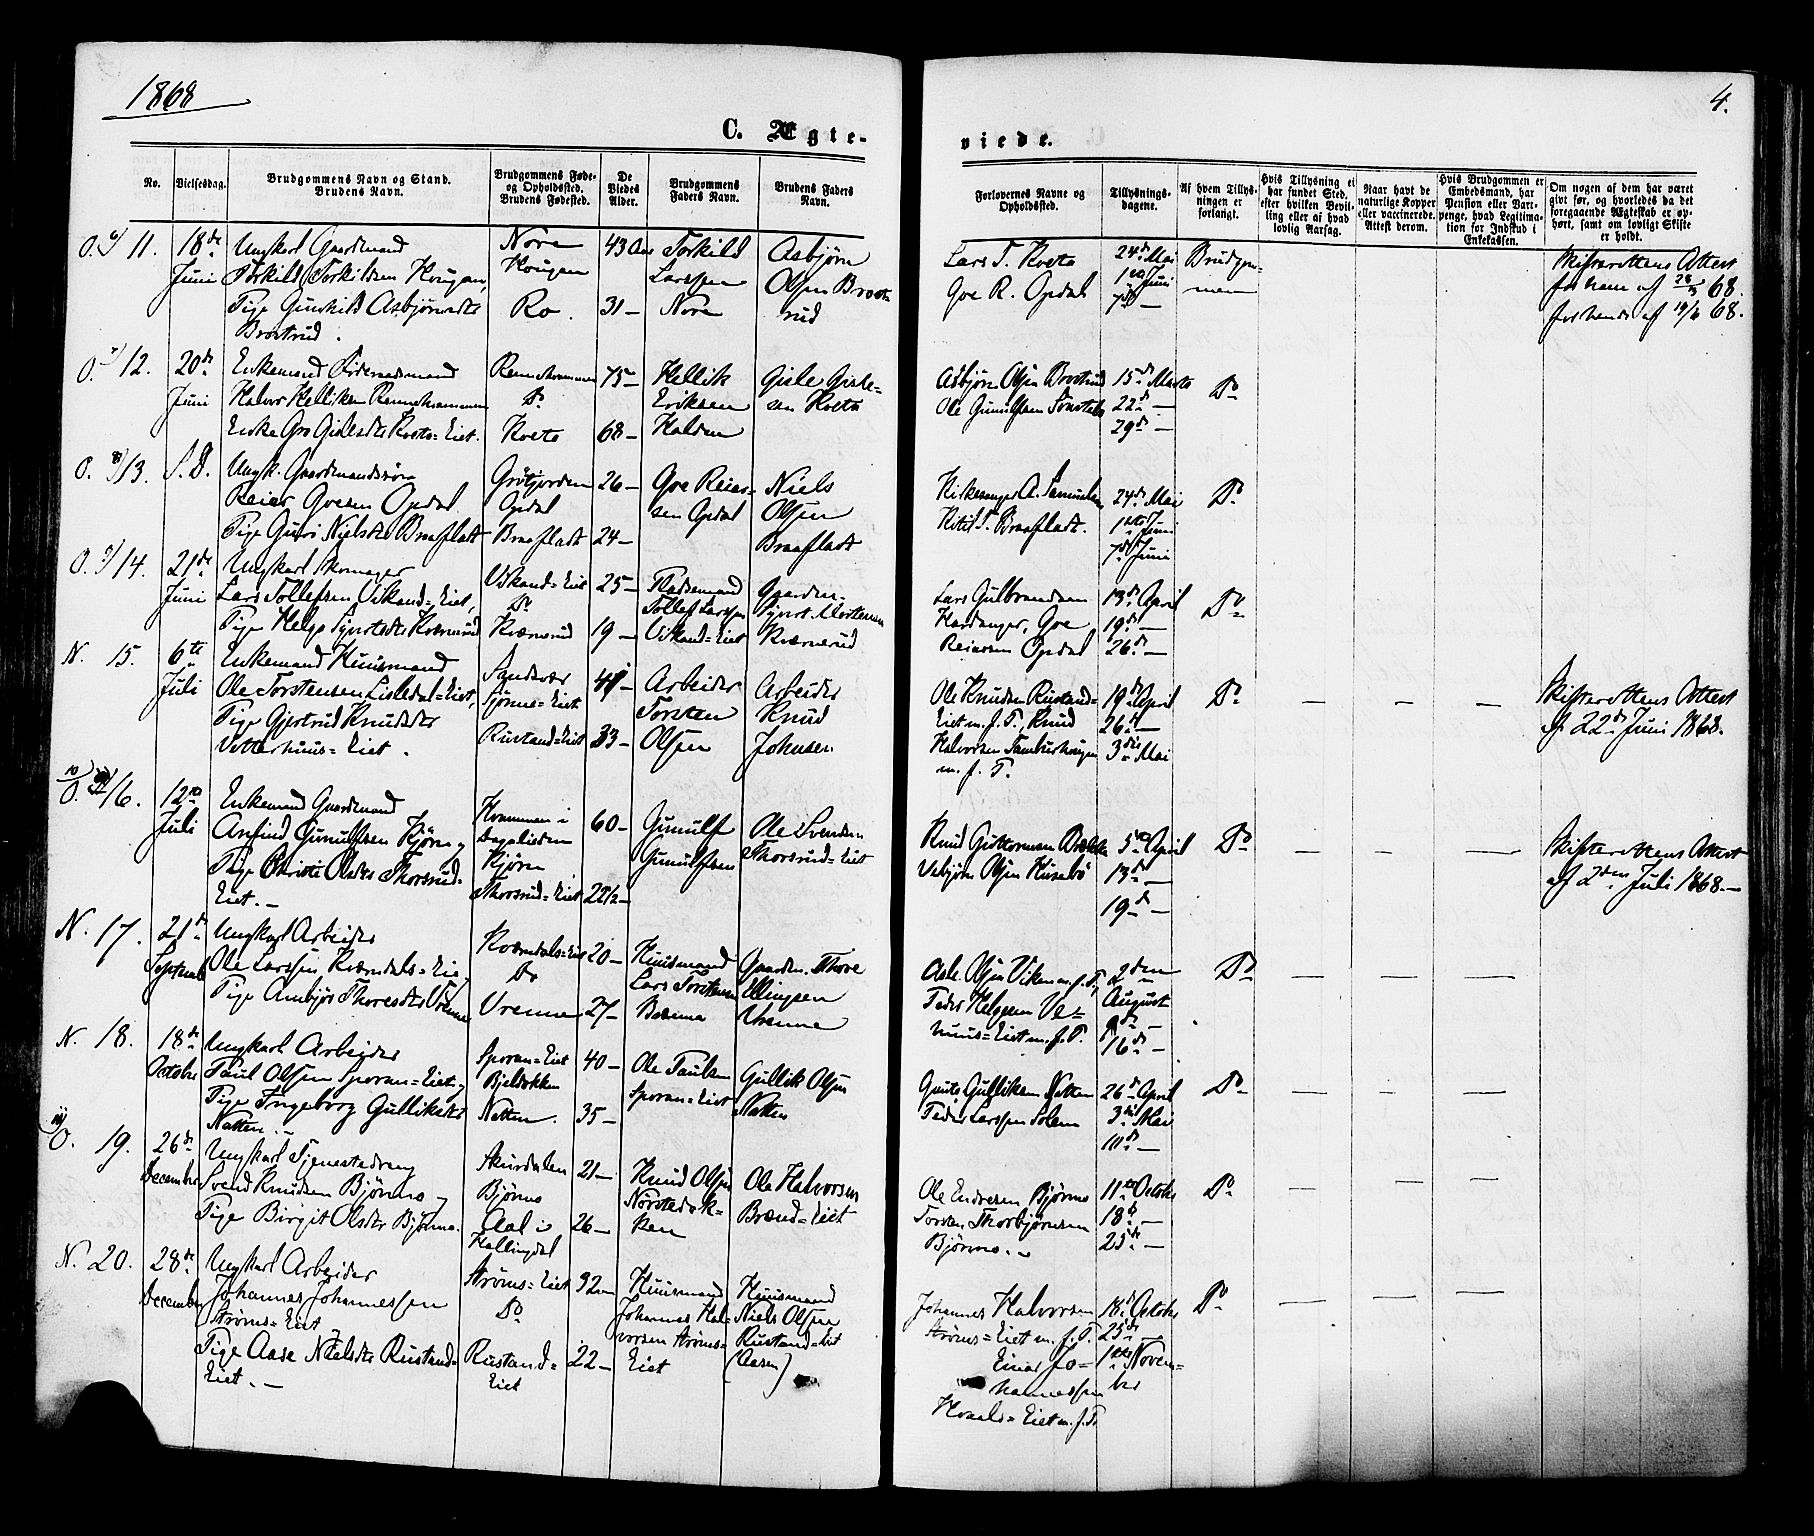 1868
4.
C. Ægte-
viede.
No.
Vielsesdag.
Brudgommens Navn og Stand.
Brudens Navn.
Brudgommens Føde-
og Opholdssted.
Brudens Fødested.
De
Viedes
Alder.
Brudgommens
Faders Navn.
Brudens Faders
Navn.
Forlovernes Navne og
Opholdssted.
Tillysnings-
dagene.
Af hvem Tillys-
ningen er
forlangt.
Hvis Tillysning ei
har fundet Sted,
efter hvilken Bevil-
ling eller af hvad
lovlig Aarsag.
Naar havt de
naturlige Kopper
eller vaccinerede.
Attest derom.
Hvis Brudgommen er
Embedsmand, har
Pension eller Vart-
penge, hvad Legitima-
tion for Indskud i
Enkekassen.
Om nogen af dem har været
givt før, og hvorledes da det
foregaaende Ægteskab er op-
hørt, samt om lovligt Skifte
er holdt.
O. 6/ 11.
18de
Juni
Ungkarl Gaardmand
Torkild Torkildsen Kougan,
Tige Gunhild Asbjørnsdtr
Brostrud.
Nore
Kougan
Ro.
43 Aar
31 —
Torkild
Larssen
Nore
Asbjørn
Olsen Brost-
rud
Lars T. Kvets
Goe R. Opdal
24de Mai
1ste Juni
7de —
Brudgom-
men
Skifterettens Attest
for ham af 68.
for hende af 68.
O. 7/ 12.
20de
Juni
Enkemand Føderaadsmand
Halvor Helliksen Rennehvammen
Enke Gro Gislesdtr Kvets=Eiet.
Rennehvammen
Do
Kvets
75 —
68 —
Hellik
Eriksen
Halden
Gisle Gisle-
sen Kvets
Asbjørn Olsen Brostrud
Ole Gunulfsen
15de Marts
22de —
29de —
Do
O. 8/ 13.
S. D.
Ungk. Gaardmandssøn
Reier Goesen Opdal
Pige Guri Nielsdtr Braafladt
Opdal
Braafladt
26 —
24 —
Goe Reier-
sen Opdal
Niels
Olsen
Braafladt
Kirkesanger A. Samuelsen
Kitil T. Braafladt.
24de Mai
1ste Juni
7de Juni
Do
O. 9/ 14.
21de
Juni
Ungkarl Skomager
Lars Tollefsen Vikand=Eiet,
Pige Helga Synstedtr Kværnrud
Vikand=Eiet
Do
Kværnrud
25 —
19 —
Pladsemand
Tollef Larssen
Vikand=Eiet
Gaardm.
Kværnerud
Lars Gulbrandsen
Hardanger, Goe
Reiersen Opdal
13de April
19de —
26de —
Do
N. 15.
6te
Juli
Enkemand Huusmand
Ole Torstensen Lisledal=Eiet,
Pige Gjertrud Knudsdtr
Vetterhuus=Eiet.
Sandsvær
Rustand=Eiet
41 —
33 —
Arbeider
Torsten
Olsen
Arbeider
Knud
Johnsen
Ole Knudsen Rustand=
Eiet m. f. T., Knud
Halvorsen
m. f. T.
19de April
26de —
3die Mai
Do
— — —
Skifterettens Attest
af 22de Juni 1868.
O. 10/ 16.
12te
Juli
Enkemand Gaardmand
Anfind Gunulfsen Kjøn,
Pige Christi Olsdtr Thorsrud=
Eiet. —
Hvammen i
Dagaliden
Kjøn
Thorsrud=Eiet
60 —
22½ —
Gunulf
Gunulfsen
Ole Svendsen
Thorsrud=Eiet
Knud Guttormsen
Vebjørn Olsen Huusebö
5te April
13de —
19de —
Do
— — —
Skifterettens Attest
af 2den Juli 1868. —
N. 17.
21de
Septemb
Ungkarl Arbeider
Ole Larssen Kværndals=Eie,
Pige Ambjør Thoresdtr Vrenne
Kværndals=Eiet
Do
Vrenne
20 —
27 —
Huusmand
Lars Torstensen
Gaardm. Thore
Ellingsen
Vrenne
Asle Olsen Viken m. f. T,
Peder Helgesen Ve=
huus=Eiet m. f. T.
2den
August
9de —
16de —
Do
— — —
N. 18.
18de
October
Ungkarl Arbeider
Paul Olsen Sporan=Eiet,
Pige Ingeborg Gulliksdtr
Natten. —
Sporan=Eiet
Natten.
40 —
35 —
Ole Paulsen
Sporan=Eiet
Gullik Olsen
Natten
Gunte Gulliksen Natten
Peder Larssen Solem
26de April
3die Mai
10de —
Do
— — —
O. 19.
26de
December
Ungkarl Tjenestedreng
Svend Knudsen Bjørmo
Pige Birgit Olsdtr Bjørmo.
Skurdalen
Bjørmo
Aal i
Hallingdal
21 —
26 —
Knud Olsen
Nørstedøk-
ken
Ole Halvorsen
Brænd=Eiet
Ole Endresen Bjørmo
Torsten Thorbjørnsen
Bjørmo. —
11te October
18de —
25de —
Do
— — —
N. 20.
28de
December
Ungkarl Arbeider
Johannes Johannessen
Strøms=Eiet
Pige Aase Nielsdtr Rustand=
Eiet. —
Strøms=Eiet
Do
Rustand=
Eiet
32 —
22 —
Huusmand
Johannes Hal-
vorsen Strøms=
Eiet
Huusmand
Niels Olsen
Rustand=Eiet
(Aasen)
Johannes Halvorsen
Strøms=Eiet m. f. T.
Einar Jo=
hannessen
Eiet m. f. T.
18de October
25de —
1ste Novem=
ber
Do
— — —